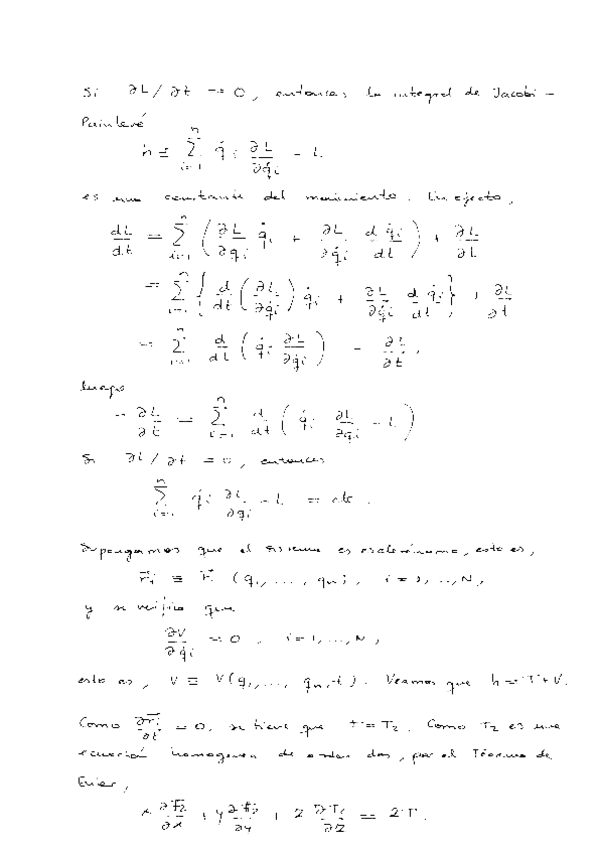 Si ∂L/∂t = 0, entonces la integral de Jacobi-
Painlevé
h ≡ Σ_{i=1}^{n} q̇i ∂L/∂q̇i - L
es una constante del movimiento. En efecto,
dL/dt = Σ_{i=1}^{n} ( ∂L/∂qi q̇i + ∂L/∂q̇i dq̇i/dt ) + ∂L/∂t
= Σ_{i=1}^{n} { d/dt ( ∂L/∂q̇i ) q̇i + ∂L/∂q̇i d/dt q̇i } + ∂L/∂t
= Σ_{i=1}^{n} d/dt ( q̇i ∂L/∂q̇i ) - ∂L/∂t,
luego
- ∂L/∂t = Σ_{i=1}^{n} d/dt ( q̇i ∂L/∂q̇i - L )
Si ∂L/∂t = 0, entonces
Σ_{i=1}^{n} q̇i ∂L/∂q̇i - L = cte.
Supongamos que el sistema es esclerónomo, esto es,
r⃗i ≡ r⃗i (qi, ..., qn), i = 1, ..., N,
y se verifica que
∂V/∂q̇i = 0, i = 1, ..., N,
esto es, V ≡ V(qi, ..., qn, t). Veamos que h = T + V.
Como ∂r⃗i/∂t = 0, se tiene que T = T2. Como T2 es una
ecuación homogenea de orden dos, por el Teorema de
Euler,
x ∂T2/∂x + y ∂T2/∂y + z ∂T2/∂z = 2T.